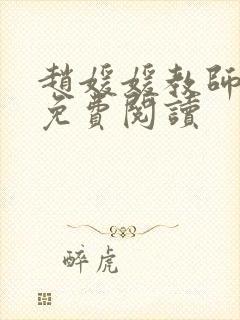 趙媛媛教師
免費閱讀
醉虎